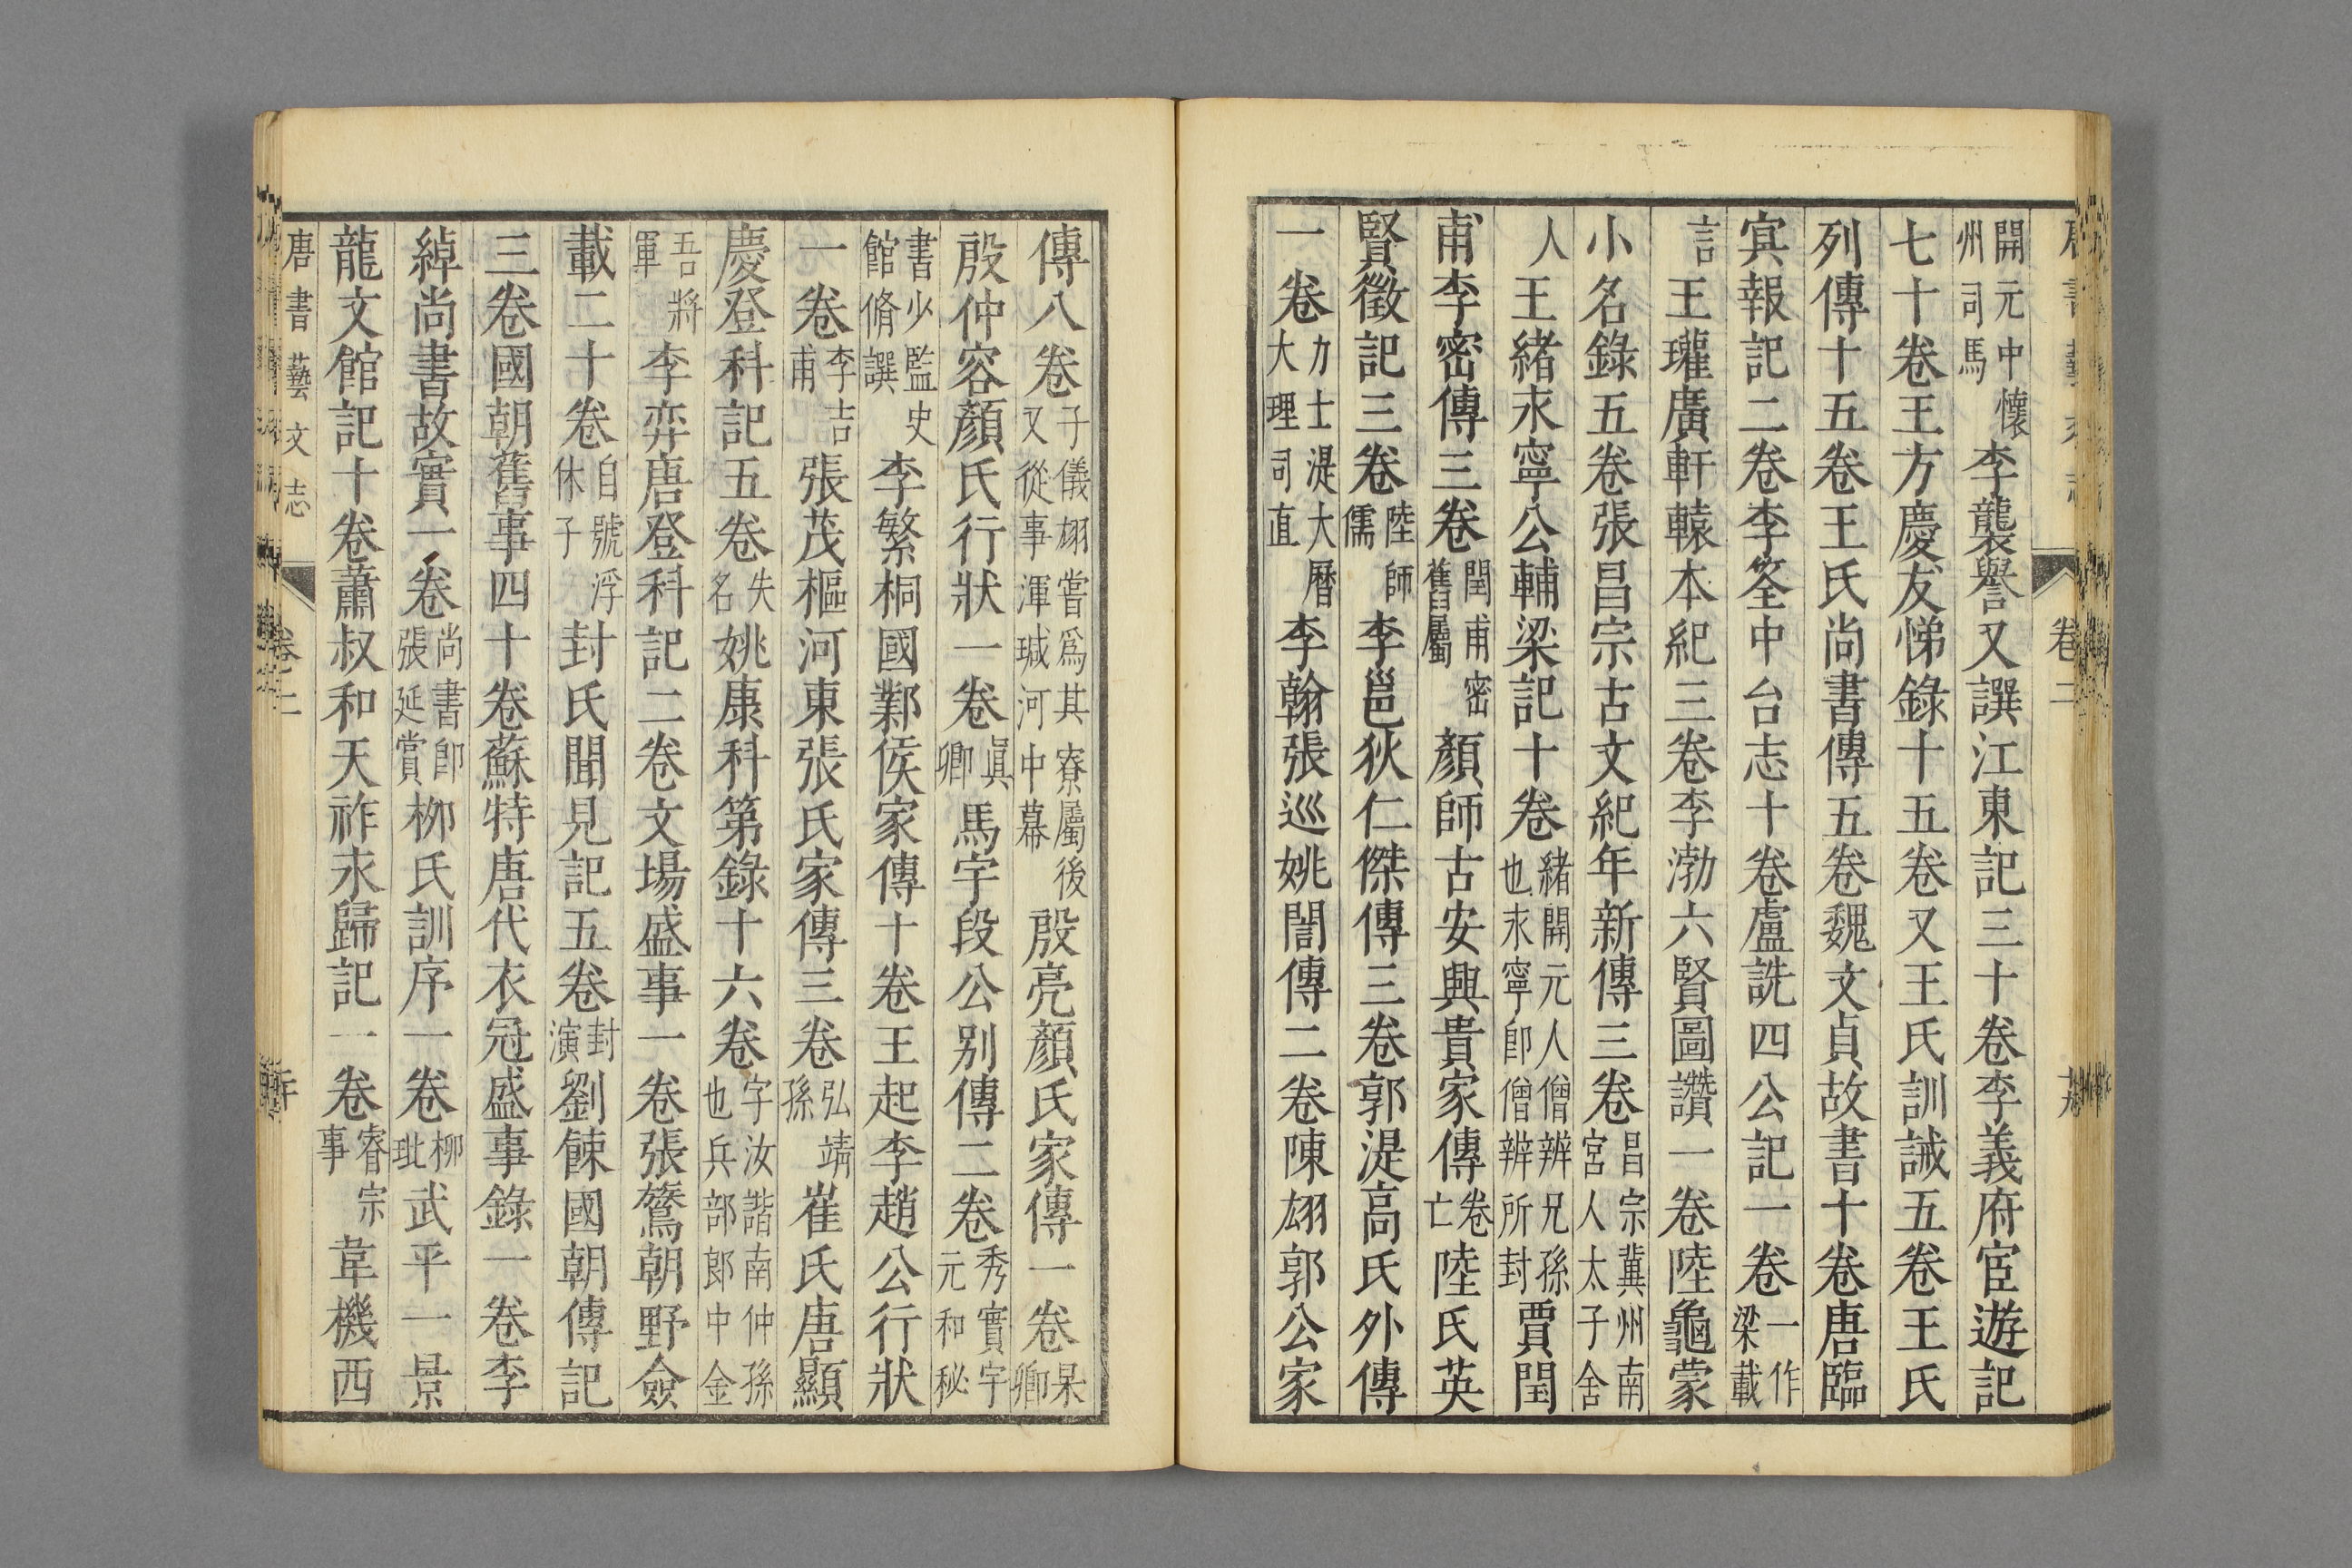 開元中懷州司馬李襲譽又譔江東記三十卷李義府宦遊記
七十卷王方慶友悌錄十五卷又王氏訓誡五卷王氏
列傳十五卷王氏尚書傳五卷魏文貞故書十卷唐臨
寘報記二卷李筌中台志十卷盧詵四公記一卷一作梁載
言王瓘廣軒轅本紀三卷李渤六賢圖讚一卷陸龜蒙
小名錄五卷張昌宗古文紀年新傳三卷昌宗冀州南宮人太子舍
人王緒永寧公輔梁記十卷緒開元人僧辨兄孫也永寧卽僧辨所封賈閏
甫李密傳三卷閏甫密舊屬顏師古安興貴家傳卷亡陸氏英
賢徵記三卷陸師儒李邕狄仁傑傳三卷郭湜高氏外傳
一卷力士湜大曆大理司直李翰張巡姚誾傳二卷陳翃郭公家
傳八卷子儀翃嘗爲其寮屬後又從事渾瑊河中幕殷亮顏氏家傳一卷杲卿
殷仲容顏氏行狀一卷眞卿馬宇段公别傳二卷秀實宇元和秘
書少監史館脩譔李繁桐國鄴侯家傳十卷王起李趙公行狀
一卷李吉甫張茂樞河東張氏家傳三卷弘靖孫崔氏唐顯
慶登科記五卷失名姚康科第錄十六卷字汝諧南仲孫也兵部郎中金
吾將軍李弈唐登科記二卷文場盛事一卷張鷟朝野僉
載二十卷自號浮休子封氏聞見記五卷封演劉餗國朝傳記
三卷國朝舊事四十卷蘇特唐代衣冠盛事錄一卷李
綽尚書故實一卷尚書卽張延賞柳氏訓序一卷柳玭武平一景
龍文館記十卷蕭叔和天祚永歸記一卷睿宗事韋機西
唐書藝文志
卷二